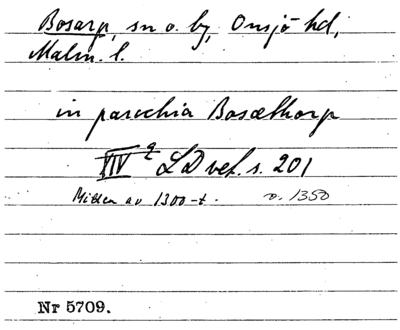 Bosarp, sn o. by, Onsjö hd,
Malm. l.
in parochia Bosæthorp
XIV 2 LD vet. s. 201
Mitten av 1300-t. o. 1350
Nr 5709.